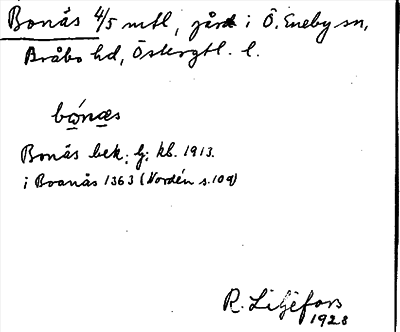 Bonås 4/5 mtl, gård i Ö. Eneby sn,
Bråbo hd, Östergtl. l.
bo̱næ̱s
Bonås bek. lj. kb. 1913.
i Boanås 1363 (Nordén s. 109)
R. Liljefors
1928